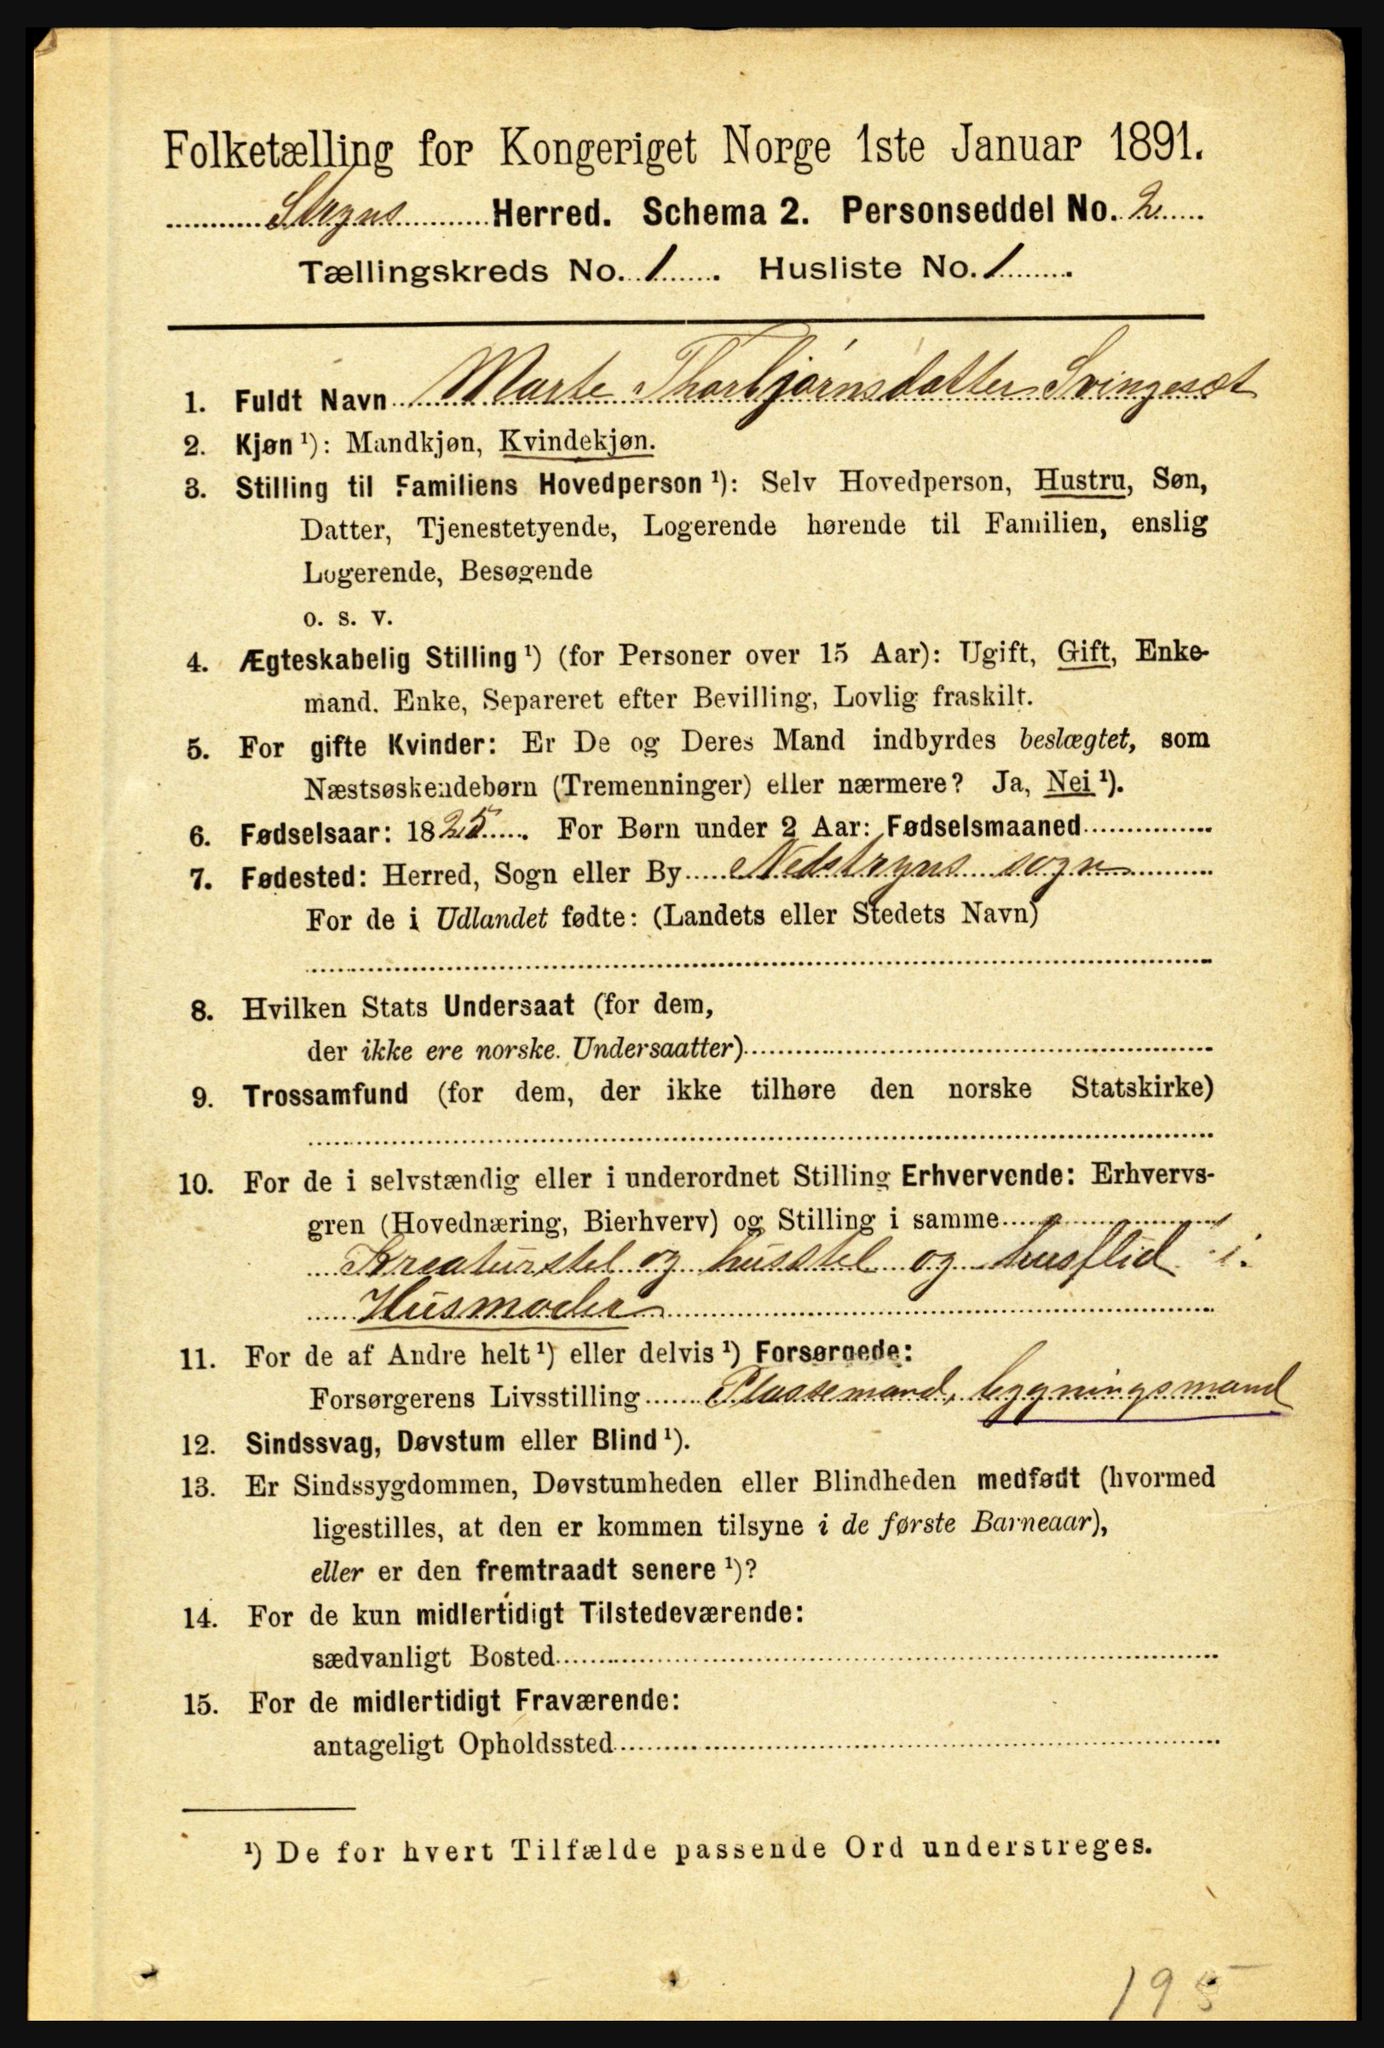 Folketælling for Kongeriget Norge 1ste Januar 1891.
Stryns Herred. Schema 2. Personseddel No. 2
Tællingskreds No. 1. Husliste No. 1.
1. Fuldt Navn Marte Thorbjørnsdatter Svingesæt
2. Kjøn ¹): Mandkjøn, Kvindekjøn.
3. Stilling til Familiens Hovedperson ¹): Selv Hovedperson, Hustru, Søn,
Datter, Tjenestetyende, Logerende hørende til Familien, enslig
Logerende, Besøgende
o. s. v.
4. Ægteskabelig Stilling ¹) (for Personer over 15 Aar): Ugift, Gift, Enke-
mand. Enke, Separeret efter Bevilling, Lovlig fraskilt.
5. For gifte Kvinder: Er De og Deres Mand indbyrdes beslægtet, som
Næstsøskendebørn (Tremenninger) eller nærmere? Ja, Nei ¹).
6. Fødselsaar: 1825. For Børn under 2 Aar: Fødselsmaaned
7. Fødested: Herred, Sogn eller By Nedstryns sogn
For de i Udlandet fødte: (Landets eller Stedets Navn)
8. Hvilken Stats Undersaat (for dem,
der ikke ere norske. Undersaatter)
9. Trossamfund (for dem, der ikke tilhøre den norske Statskirke)
10. For de i selvstændig eller i underordnet Stilling Erhvervende: Erhvervs-
gren (Hovednæring, Bierhverv) og Stilling i samme
Kreaturstel og husstel og husflid i.
Husmoder
11. For de af Andre helt ¹) eller delvis ¹) Forsørgede:
Forsørgerens Livsstilling Plassemand, bygningsmand
12. Sindssvag, Døvstum eller Blind ¹).
13. Er Sindssygdommen, Døvstumheden eller Blindheden medfødt (hvormed
ligestilles, at den er kommen tilsyne i de første Barneaar),
eller er den fremtraadt senere ¹)?
14. For de kun midlertidigt Tilstedeværende:
sædvanligt Bosted
15. For de midlertidigt Fraværende:
antageligt Opholdssted
¹) De for hvert Tilfælde passende Ord understreges.
195